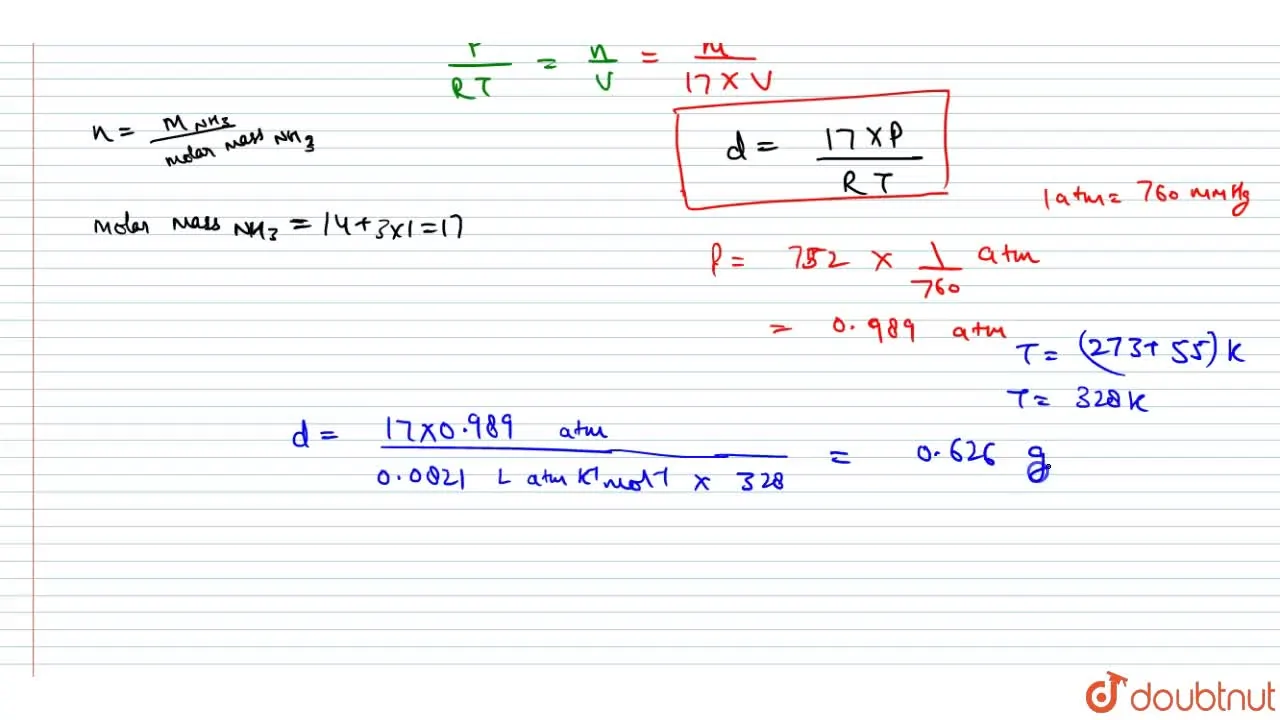 P/RT = n/V = m/17 × V
n = M NH3/molar mass NH3
d = 17 × P/RT
1 atm = 760 mmHg
molar mass NH3 = 14 + 3 × 1 = 17
P = 752 × 1/760 atm
= 0.989 atm
T = (273 + 55) K
T = 328 K
d = 17 × 0.989 atm/0.0821 L atm K⁻¹ mol⁻¹ × 328 = 0.626 g
doubtnut